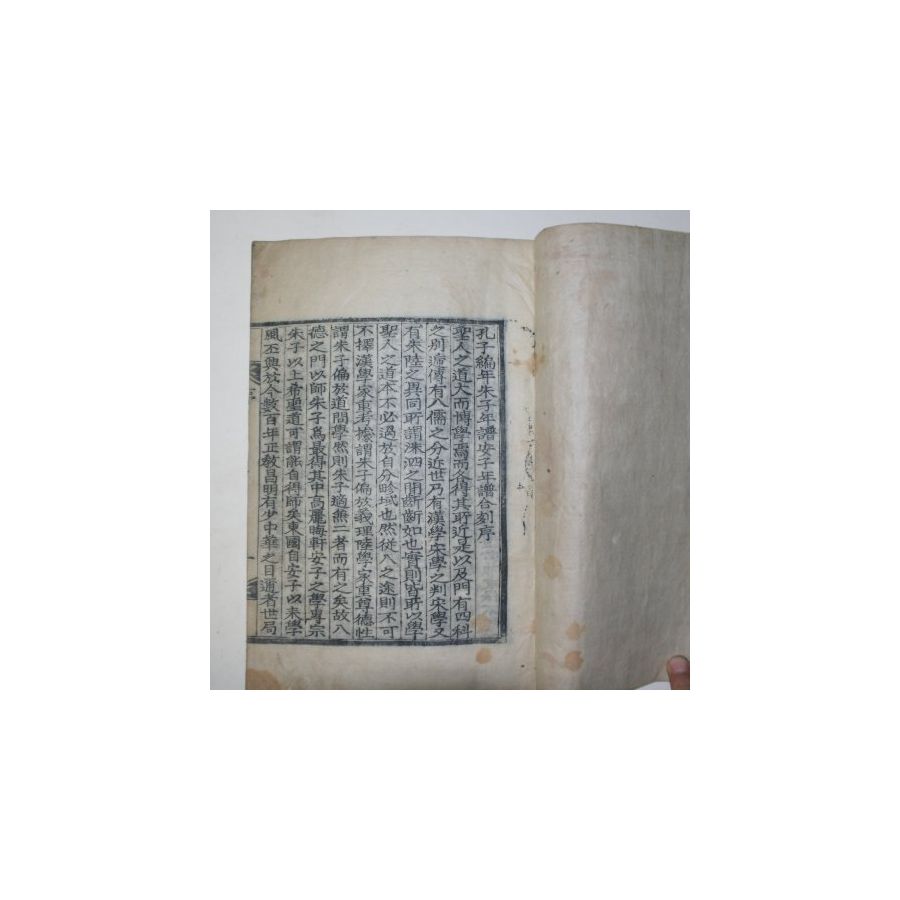 孔子編年朱子年譜安子年譜合刻序
聖人之道大而博學焉而各得其所近是以及門有四科
之別流傳有八儒之分近世乃有漢學宋學之判宋學又
有朱陸之異同所謂洙泗之間斷斷如也實則皆所以學
聖人之道本不必過於自分畛域也然從入之途則不可
不擇漢學家重考據謂朱子偏於義理陸學家重尊德性
謂朱子偏於道問學然則朱子適無二者而有之矣故入
德之門以師朱子爲最得其中高麗晦軒安子之學專宗
朱子以上希聖道可謂能自得師矣東國自安子以來學
風丕興於今數百年正敎昌明有少中華之目邇者世局